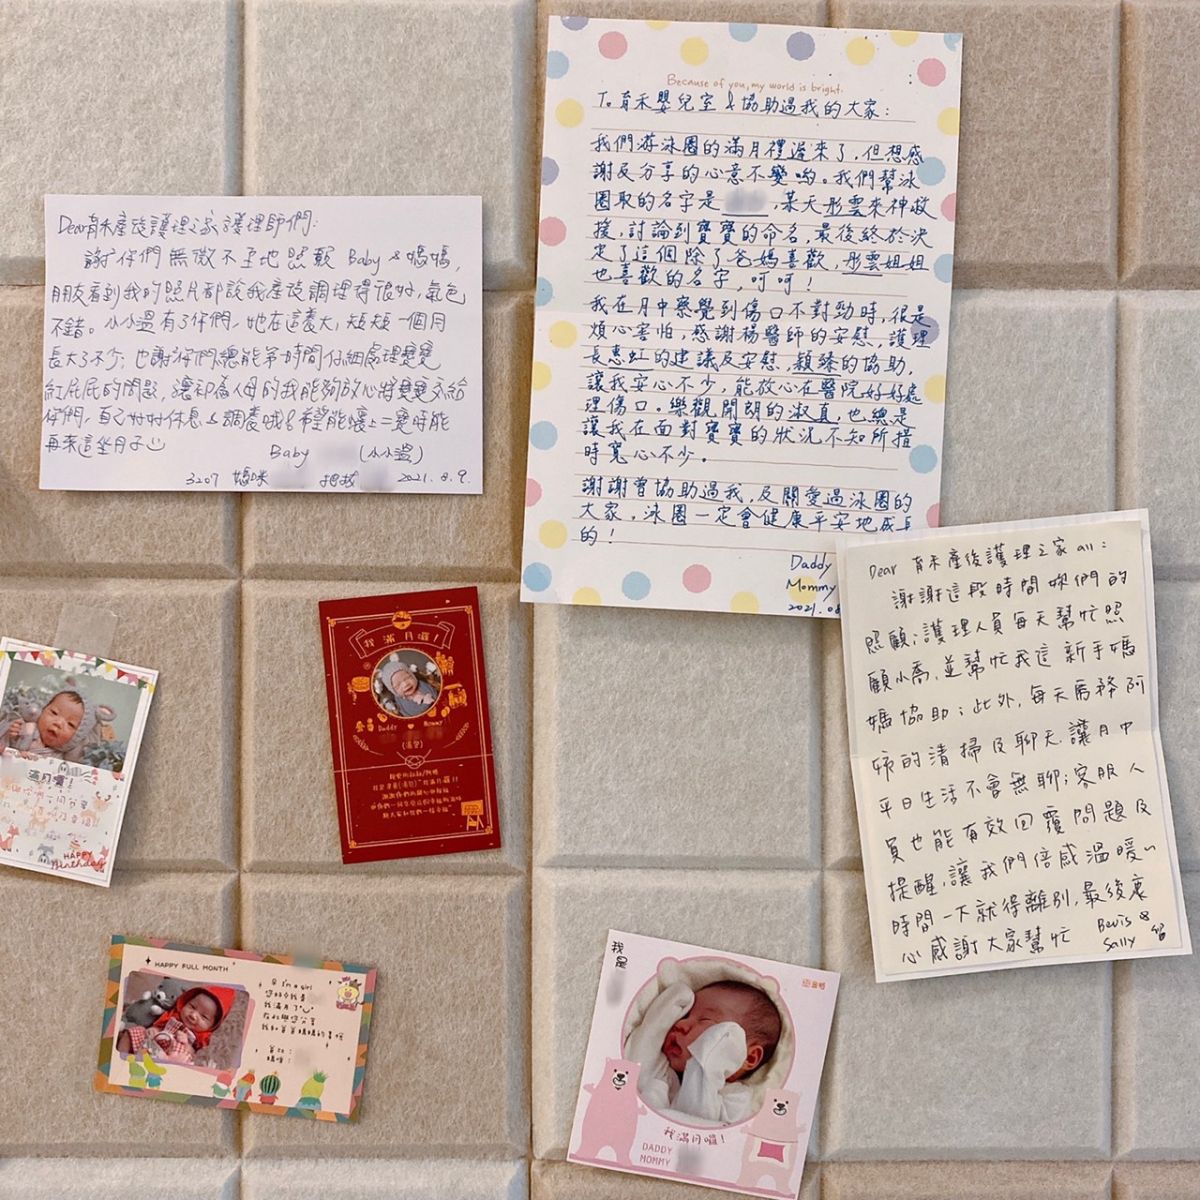 Dear育禾產後護理之家護理師們:
謝你們無微不至地照顧 Baby & 媽媽,
朋友看到我的照片都說我產後調理得很好,氣色
不錯。小小溫有了你們,她在這養大,短短一個月
長大了不少;也謝你們總能第一時間仔細處理寶寶
紅屁屁的問題,讓初為人母的我能夠放心將寶寶交給
你們,自己好好休息&調養哦!希望能懷上二寶時能
再來這坐月子
Baby (小小溫)
3207 媽咪 把拔 2021.8.9.
Because of you, my world is bright.
To 育禾嬰兒室 & 協助過我的大家:
我們游泳圈的滿月禮遲來了,但想感
謝及分享的心意不變喲。我們幫泳
圈取的名字是 ,某天彤雲來神救
援,討論到寶寶的命名,最後終於決
定了這個除了爸媽喜歡,彤雲姐姐
也喜歡的名字,呵呵!
我在月中察覺到傷口不對勁時,很是
煩心害怕,感謝楊醫師的安慰,護理
長惠虹的建議及安慰,穎臻的協助,
讓我安心不少,能放心在醫院好好處
理傷口。樂觀開朗的淑真,也總是
讓我在面對寶寶的狀況不知所措
時寬心不少。
謝謝曾協助過我,及關愛過泳圈的
大家,泳圈一定會健康平安地成長
的!
Daddy
Mommy
2021.08
Dear 育禾產後護理之家 all:
謝謝這段時間妳們的
照顧;護理人員每天幫忙照
顧小喬,並幫忙我這新手媽
媽協助;此外,每天房務阿
姨的清掃及聊天,讓月中
平日生活不會無聊;客服人
員也能有效回覆問題及
提醒,讓我們倍感溫暖~
時間一下就得離別,最後衷
心感謝大家幫忙
Bevis &
Sally 留
滿月囉!
HAPPY
Birthday
我滿月囉!
Daddy Mommy
HAPPY FULL MONTH
I'm a girl
我滿月了
我是
我滿月囉!
DADDY
MOMMY